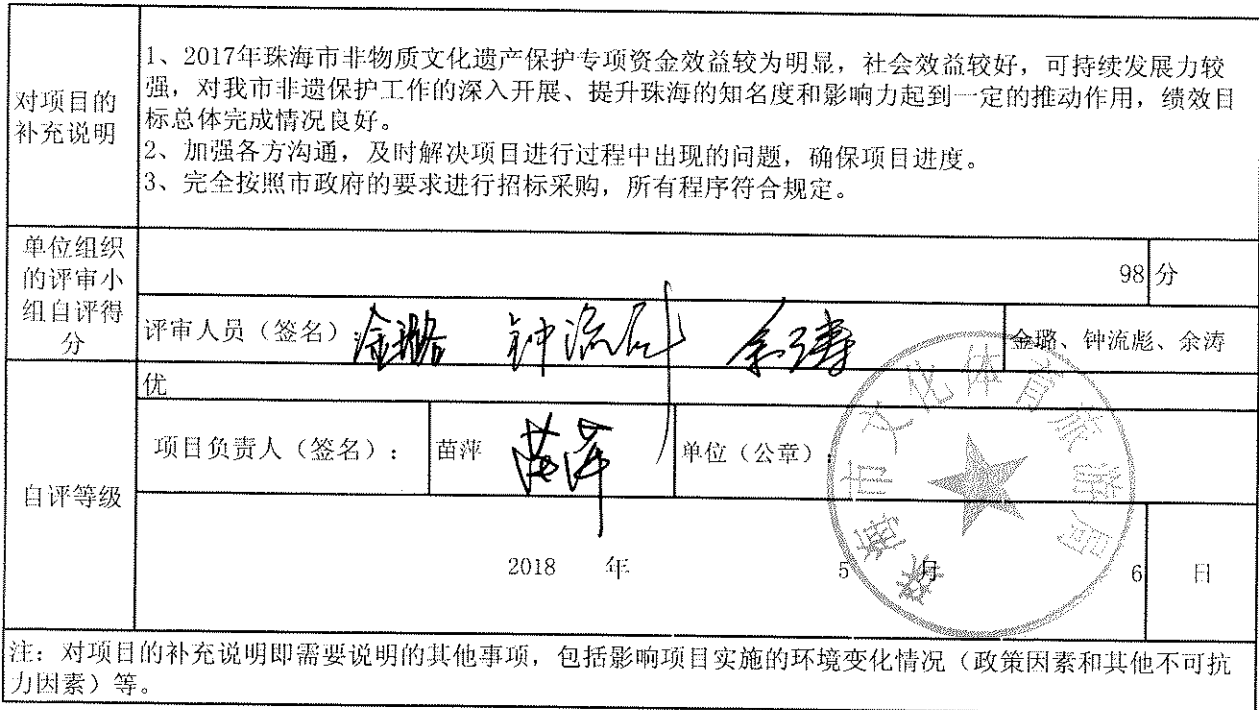 对项目的
补充说明
1、2017年珠海市非物质文化遗产保护专项资金效益较为明显，社会效益较好，可持续发展力较
强，对我市非遗保护工作的深入开展、提升珠海的知名度和影响力起到一定的推动作用，绩效目
标总体完成情况良好。
2、加强各方沟通，及时解决项目进行过程中出现的问题，确保项目进度。
3、完全按照市政府的要求进行招标采购，所有程序符合规定。
单位组织
的评审小
组自评得
分
98 分
评审人员（签名） 金璐 钟流彪 余涛 金璐、钟流彪、余涛
自评等级
优
项目负责人（签名）： 苗萍 苗萍 单位（公章）：
珠海市文化体育旅游局
2018 年 5 月 6 日
注：对项目的补充说明即需要说明的其他事项，包括影响项目实施的环境变化情况（政策因素和其他不可抗
力因素）等。